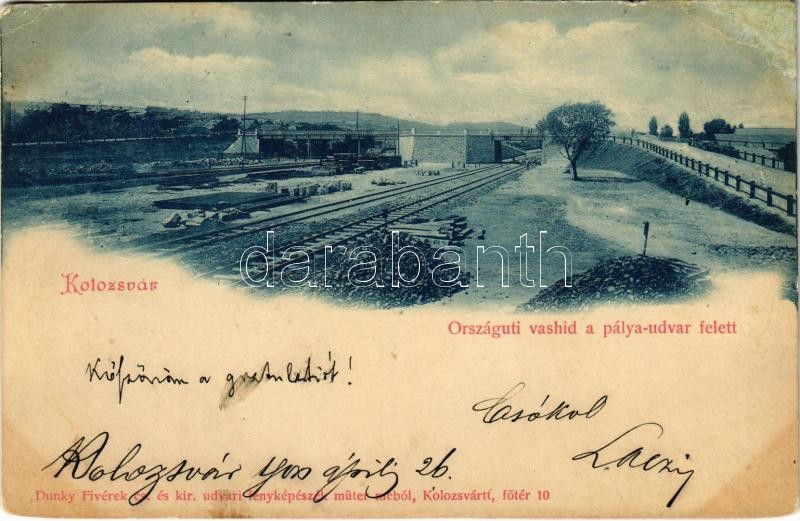 darabanth
Kolozsvár
Országuti vashid a pálya-udvar felett
Köszönöm a gratulatiót!
Csókol
Laczi
Kolozsvár április 26.
Dunky Fivérek cs. és kir. udvari fényképészek műterméből, Kolozsvártt, főtér 10